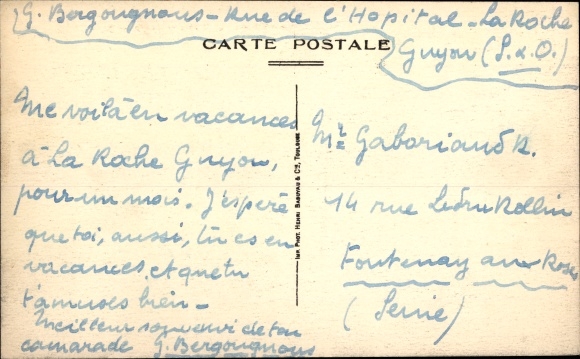 G. Bergougnous - Rue de l'Hopital - La Roche
Guyon (S. & O.)
CARTE POSTALE
Me voilà en vacances
à La Roche Guyon,
pour un mois. J'espère
que toi, aussi, tu es en
vacances, et que tu
t'amuses bien -
Meilleur souvenir de ton
camarade G. Bergougnous
IMP. PHOT. HENRI BASUYAU & Co, TOULOUSE
Mr Gaboriaud R.
14 rue Ledru Rollin
Fontenay aux Roses
(Seine)